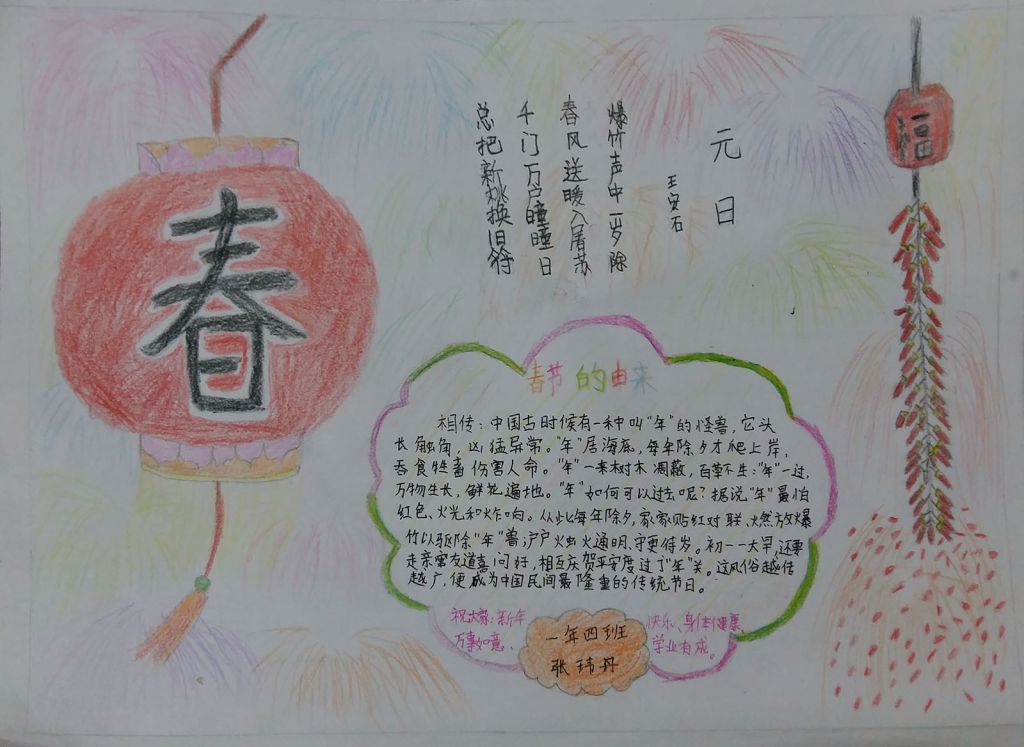 春
福
元日
王安石
爆竹声中一岁除
春风送暖入屠苏
千门万户曈曈日
总把新桃换旧符
春节的由来
相传：中国古时候有一种叫“年”的怪兽，它头
长触角，凶猛异常。“年”居海底，每年除夕才爬上岸，
吞食牲畜伤害人命。“年”一来树木凋蔽，百草不生；“年”一过，
万物生长，鲜花遍地。“年”如何可以过去呢？据说“年”最怕
红色、火光和炸响。从此每年除夕，家家贴红对联、燃放爆
竹以驱除“年”兽；户户火虫火通明、守更待岁。初一一大早，还要
走亲窜友道喜问好，相互庆贺平安度过了“年”关。这风俗越传
越广，便成为中国民间最隆重的传统节日。
祝大家：新年快乐、身体健康、
万事如意、学业有成。
一年四班
张玮丹